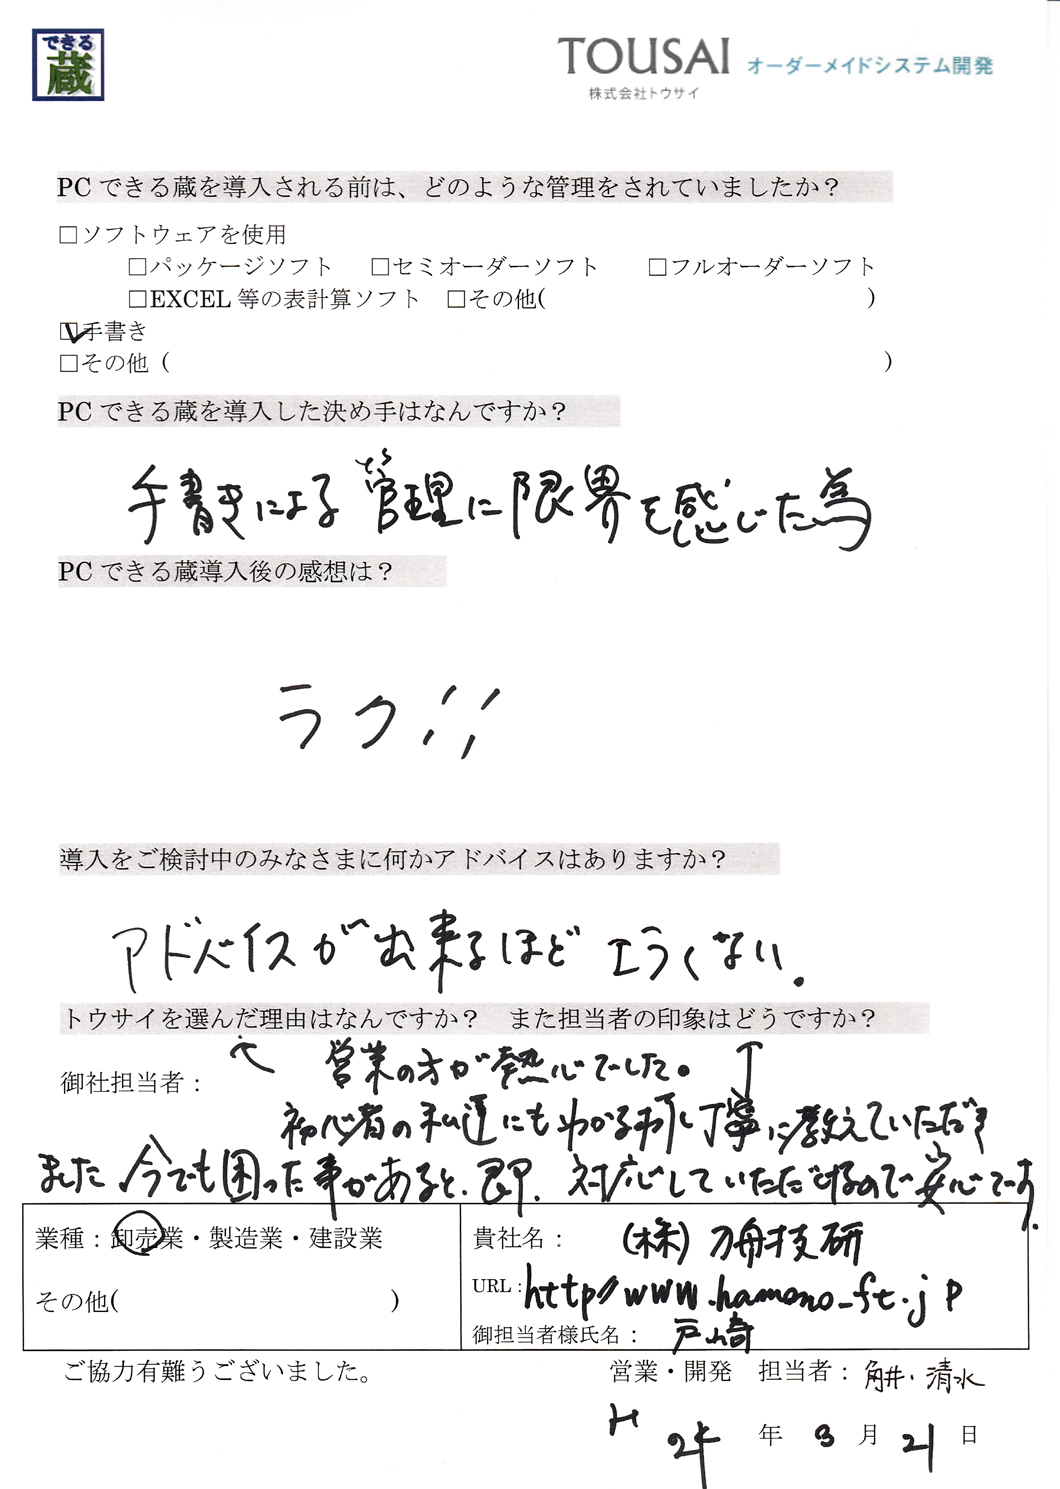 できる
蔵
TOUSAI オーダーメイドシステム開発
株式会社トウサイ
PCできる蔵を導入される前は、どのような管理をされていましたか？
□ソフトウェアを使用
□パッケージソフト □セミオーダーソフト □フルオーダーソフト
□EXCEL等の表計算ソフト □その他( )
☑手書き
□その他 ( )
PCできる蔵を導入した決め手はなんですか？
手書きによる管理に限界を感じた為
PCできる蔵導入後の感想は？
ラク!!
導入をご検討中のみなさまに何かアドバイスはありますか？
アドバイスが出来るほどエラくない。
トウサイを選んだ理由はなんですか？ また担当者の印象はどうですか？
営業の方が熱心でした。
御社担当者：
初心者の私達にもわかる様に丁寧に教えていただき
ました 今でも困った事があると、即、対応していただけるので安心です。
業種：卸売業・製造業・建設業
その他( )
貴社名： (株)刃物技研
URL：http//www.hamono-ft.jp
御担当者様氏名： 戸崎
ご協力有難うございました。
営業・開発 担当者： 角井・清水
H24年3月21日